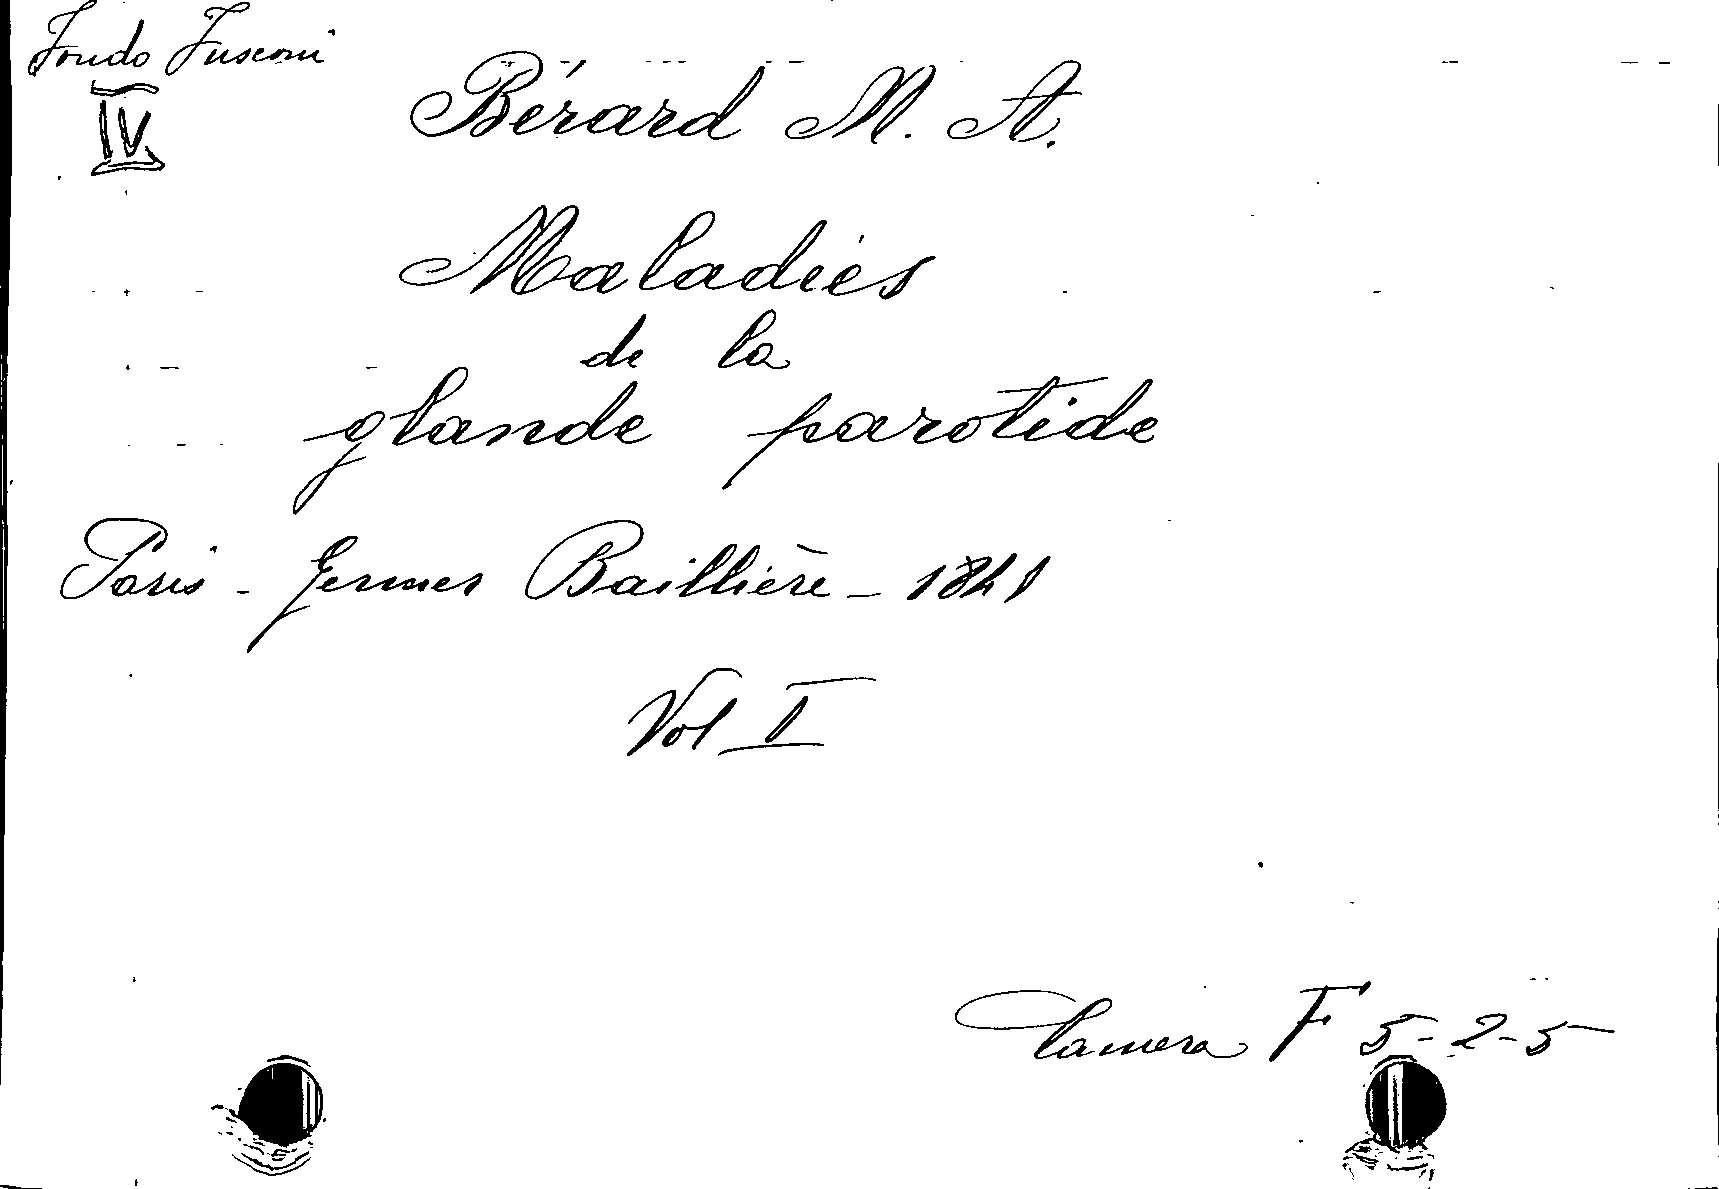 Fondo Fusconi
IV
Bérard M. A.
Maladies
de la
glande parotide
Paris - Germer Baillière - 1841
Vol I
Camera F 5-2-5